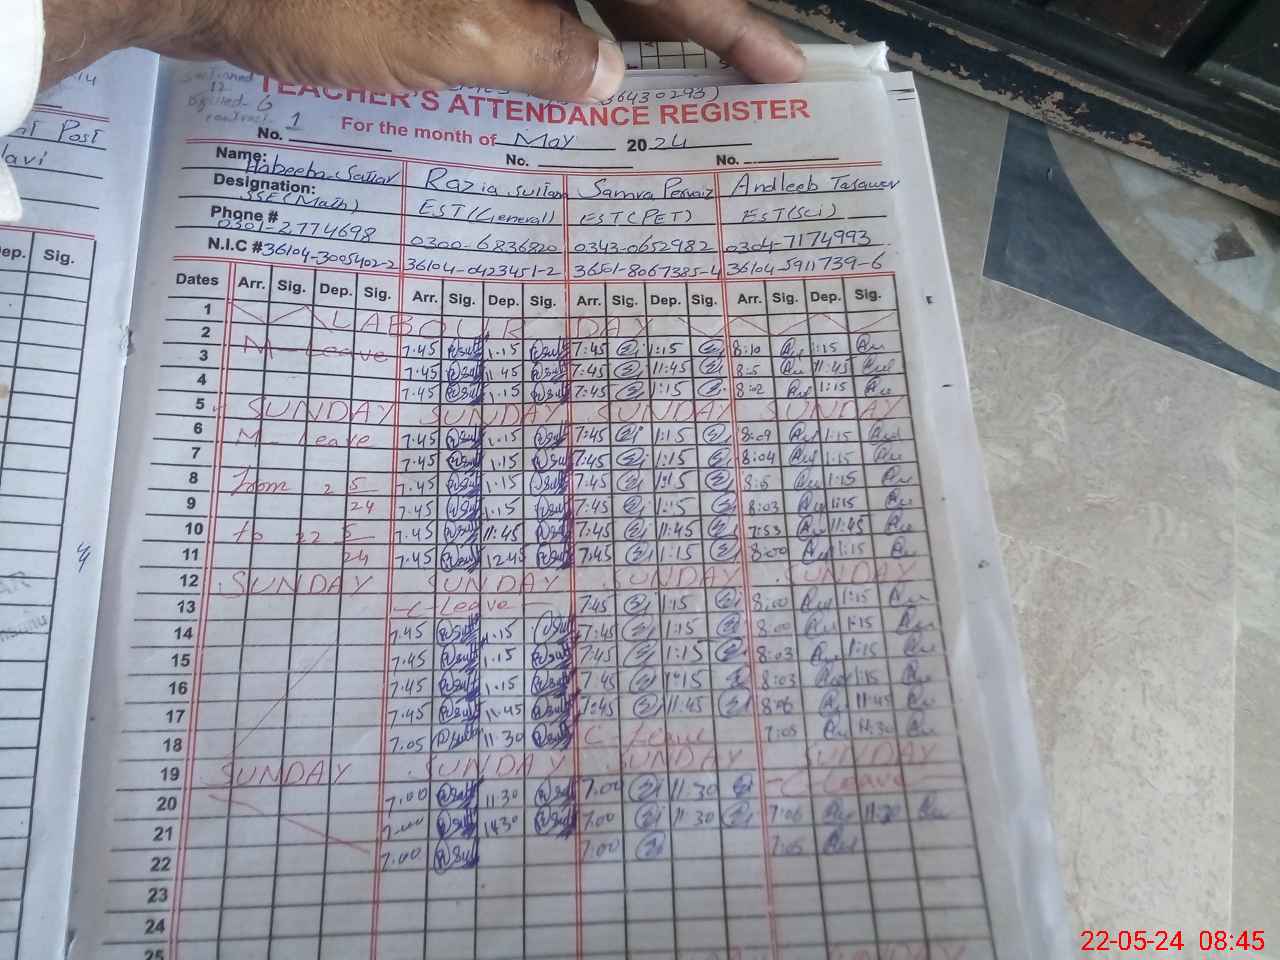 TEACHER'S ATTENDANCE REGISTER
For the month of May 2024
No. 1 No. No.
Name: Habeeba Sattar Razia Sultana Samra Pervaiz Andleeb Tasawer
Designation: SSE(Math) EST(General) EST(PET) EST(Sci)
Phone # 0301-2774698 0300-6836820 0343-0652982 0304-7174993
N.I.C # 36104-3005402-2 36104-0423451-2 36501-8067385-4 36104-5911739-6
Dates Arr. Sig. Dep. Sig. Arr. Sig. Dep. Sig. Arr. Sig. Dep. Sig. Arr. Sig. Dep. Sig.
1 LABOUR DAY
2 M-Leave 7.45 1.15 7:45 1:15 8:10 1:15
3 7.45 11.45 7:45 11:45 8:5 11:45
4 7.45 1.15 7:45 1:15 8:02 1:15
5 SUNDAY SUNDAY SUNDAY SUNDAY
6 M-leave 7.45 1.15 7:45 1:15 8:09 1:15
7 7.45 1.15 7:45 1:15 8:04 1:15
8 from 2 5/24 7.45 1.15 7:45 1:15 8:5 1:15
9 7.45 1.15 7:45 1:15 8:03 1:15
10 to 22 5/24 7.45 11:45 7:45 11:45 7:53 11:45
11 7.45 12.45 7:45 1:15 8:00 1:15
12 SUNDAY SUNDAY SUNDAY SUNDAY
13 C-Leave 7:45 1:15 8:00 1:15
14 7.45 1.15 7:45 1:15 8:00 1:15
15 7.45 1.15 7:45 1:15 8:03 1:15
16 7.45 1.15 7:45 1:15 8:03 1:15
17 7.45 11.45 7:45 11:45 8:06 11:45
18 7.05 11.30 C Leave 7:05 11:30
19 SUNDAY SUNDAY SUNDAY SUNDAY
20 7.00 11.30 7:00 11:30 C-Leave
21 7.00 11:30 7:00 11:30 7:06 11:30
22 7:00 7:00 7:05
23
24
25
Dep. Sig.
22-05-24 08:45